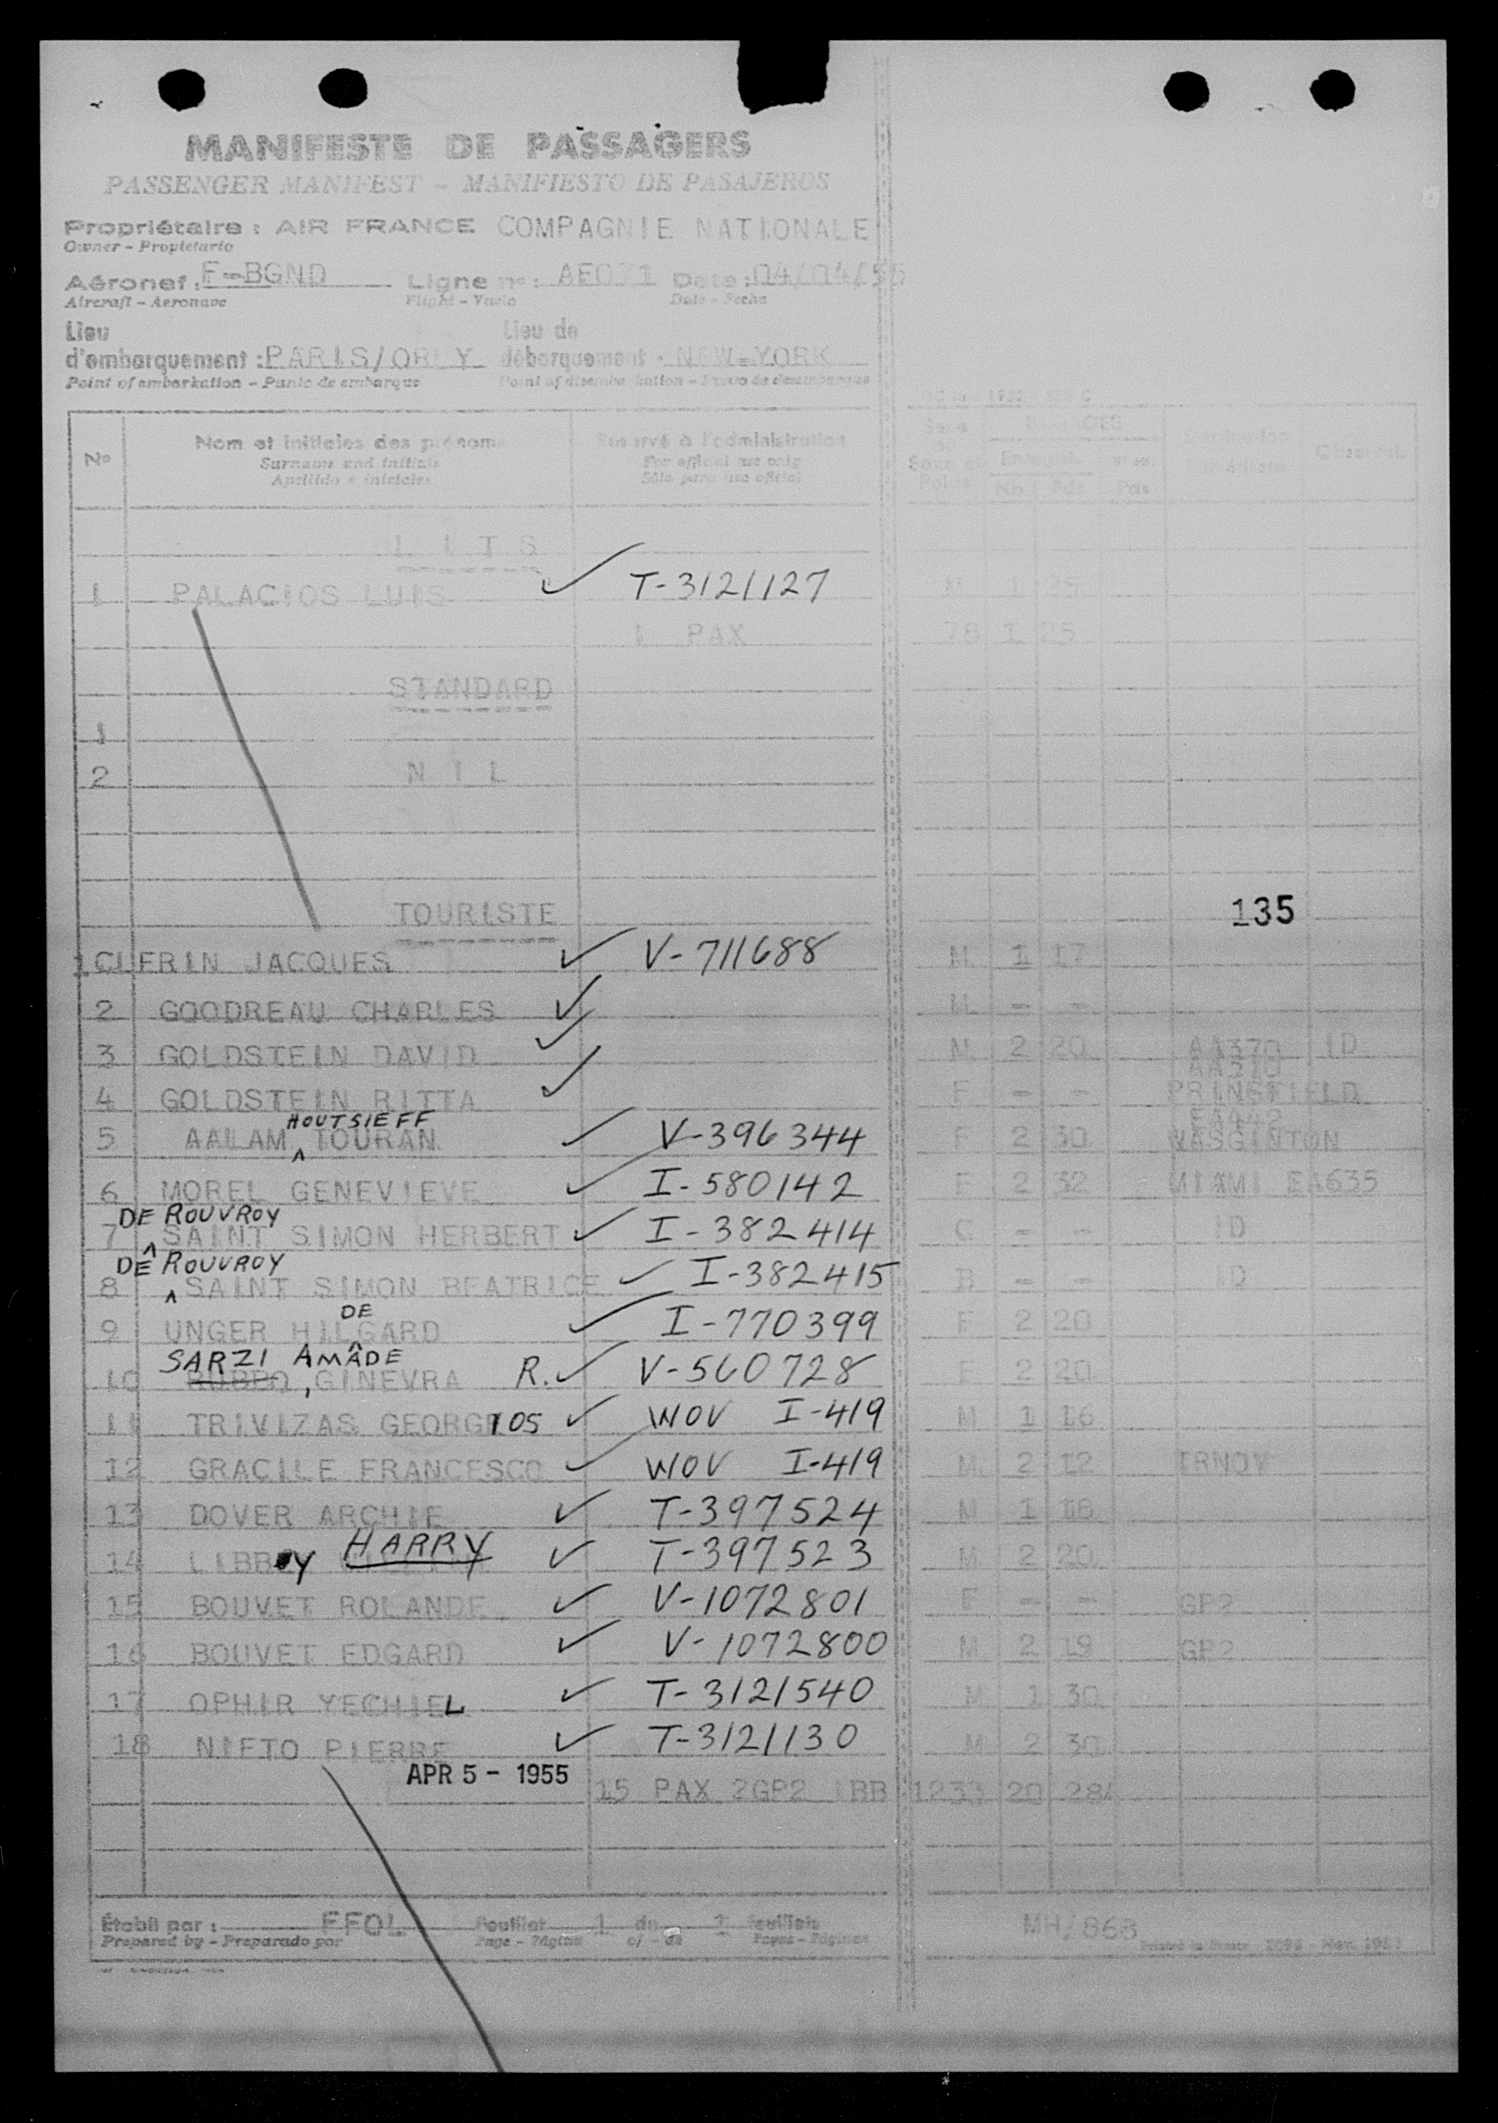 MANIFESTE DE PASSAGERS
PASSENGER MANIFEST - MANIFIESTO DE PASAJEROS
Propriétaire : AIR FRANCE COMPAGNIE NATIONALE
Owner - Propietario
Aéronef : F-BGND Ligne n° : AF071 Date : 04/04/55
Aircraft - Aeronave Flight - Vuelo Date - Fecha
Lieu d'embarquement : PARIS/ORLY Lieu de débarquement : NEW-YORK
Point of embarkation - Punto de embarque Point of disembarkation - Punto de desembarque
N° Nom et initiales des prénoms Réservé à l'administration
Surname and initials For official use only
Apellido e iniciales Sólo para uso oficial
L I T S
1 PALACIOS LUIS ✓ T-3121127 M 1 25
1 PAX 78 1 25
STANDARD
1
2 N I L
TOURISTE 135
1 CLERIN JACQUES ✓ V-711688 M 1 17
2 GOODREAU CHARLES ✓ M - -
3 GOLDSTEIN DAVID ✓ M 2 20 AA370 ID
AA310
4 GOLDSTEIN RITTA ✓ F - - PRINGFIELD
HOUTSIEFF EA442
5 AALAM ^ TOURAN ✓ V-396344 F 2 30 WASGINTON
6 MOREL GENEVIEVE ✓ I-580142 F 2 32 MIAMI EA635
DE ROUVROY
7 ^ SAINT SIMON HERBERT ✓ I-382414 C - - ID
DE ROUVROY
8 ^ SAINT SIMON BEATRICE ✓ I-382415 B - - ID
DE
9 UNGER HILGARD ✓ I-770399 F 2 20
SARZI AMADE
10 RUBBO, GINEVRA R. ✓ V-560728 F 2 20
11 TRIVIZAS GEORGIOS ✓ WOV I-419 M 1 16
12 GRACILE FRANCESCO ✓ WOV I-419 M 2 12 IRNOV
13 DOVER ARCHIE ✓ T-397524 M 1 18
14 LIBBY HARRY ✓ T-397523 M 2 20
15 BOUVET ROLANDE ✓ V-1072801 F - - GP2
16 BOUVET EDGARD ✓ V-1072800 M 2 19 GP2
17 OPHIR YECHIEL ✓ T-3121540 M 1 30
18 NIETO PIERRE ✓ T-3121130 M 2 30
APR 5 - 1955
15 PAX 2GP2 1BB 1233 20 284
Établi par : FFOL Feuillet 1 de 1 feuillets MH/868
Prepared by - Preparado por Page - Página of - de Pages - Páginas